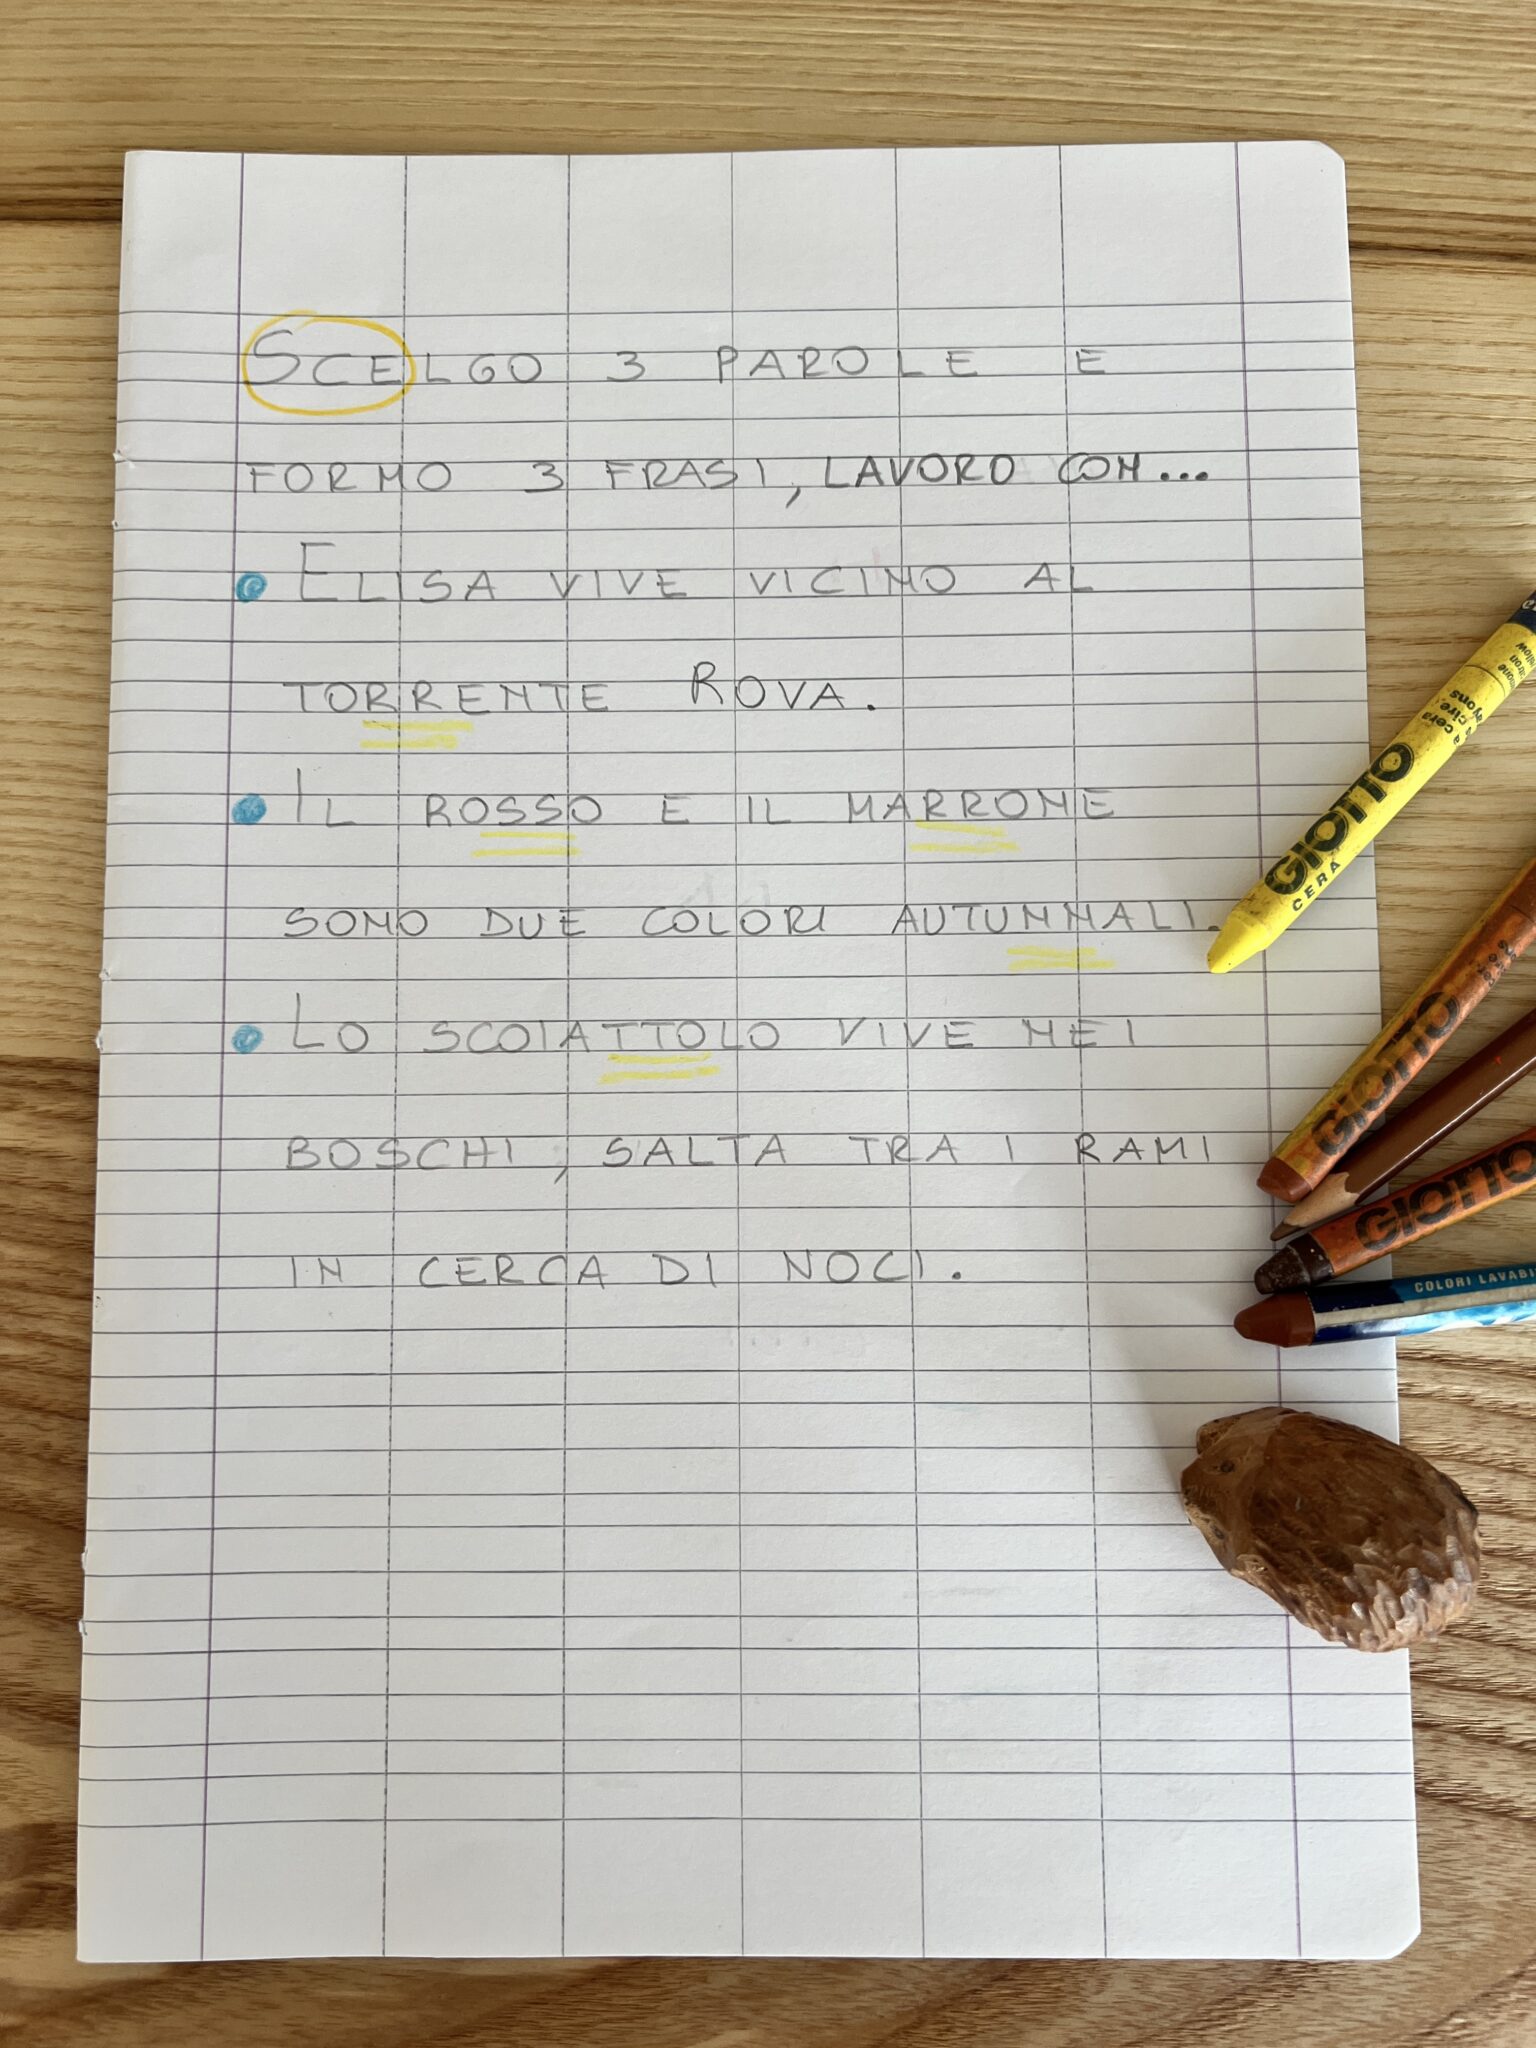 SCELGO 3 PAROLE E
FORMO 3 FRASI, LAVORO CON...
ELISA VIVE VICINO AL
TORRENTE ROVA.
IL ROSSO E IL MARRONE
SONO DUE COLORI AUTUNNALI.
LO SCOIATTOLO VIVE NEI
BOSCHI, SALTA TRA I RAMI
IN CERCA DI NOCI.
GIOTTO
CERA
a cera
GIOTTO
GIOTTO
COLORI LAVABI